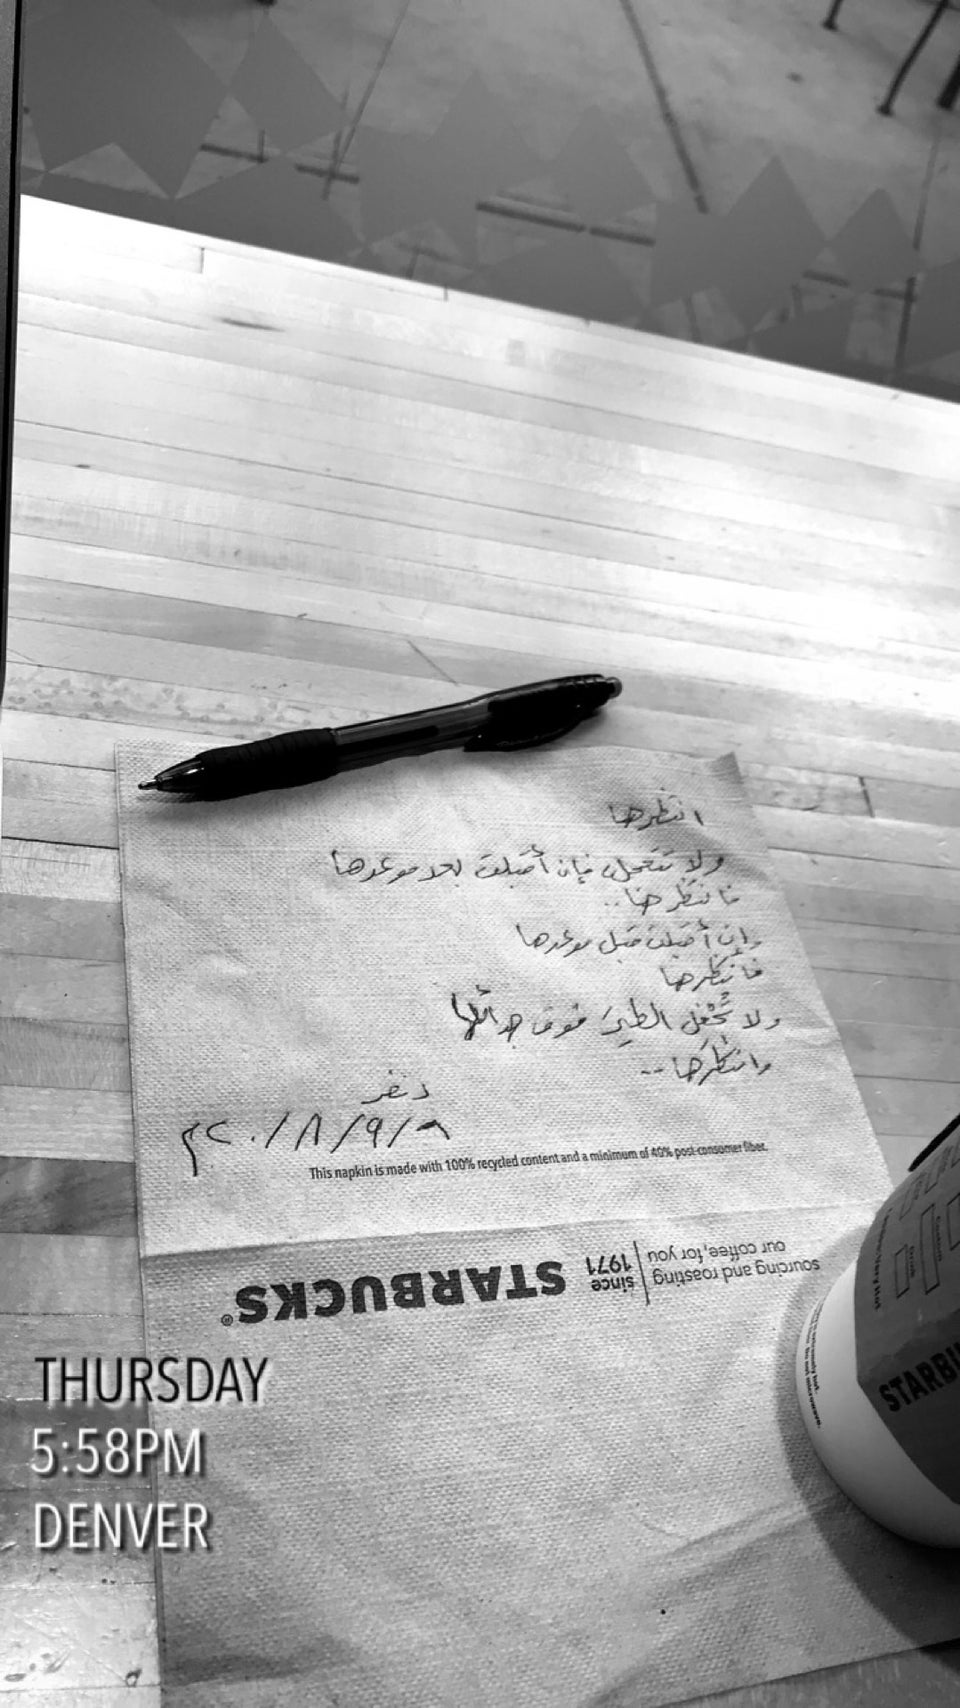 انتظرها
ولا تتعجل، فإن أقبلت بعد موعدها
فانتظرها..
وإن أقبلت قبل موعدها
فانتظرها
ولا تُجْفِل الطيرَ فوق جدائلها
وانتظرها..
دنفر
٢٠١٨/٩/٨م
This napkin is made with 100% recycled content and a minimum of 40% post-consumer fiber.
STARBUCKS®
since 1971
sourcing and roasting
our coffee, for you
STARBU
THURSDAY
5:58PM
DENVER